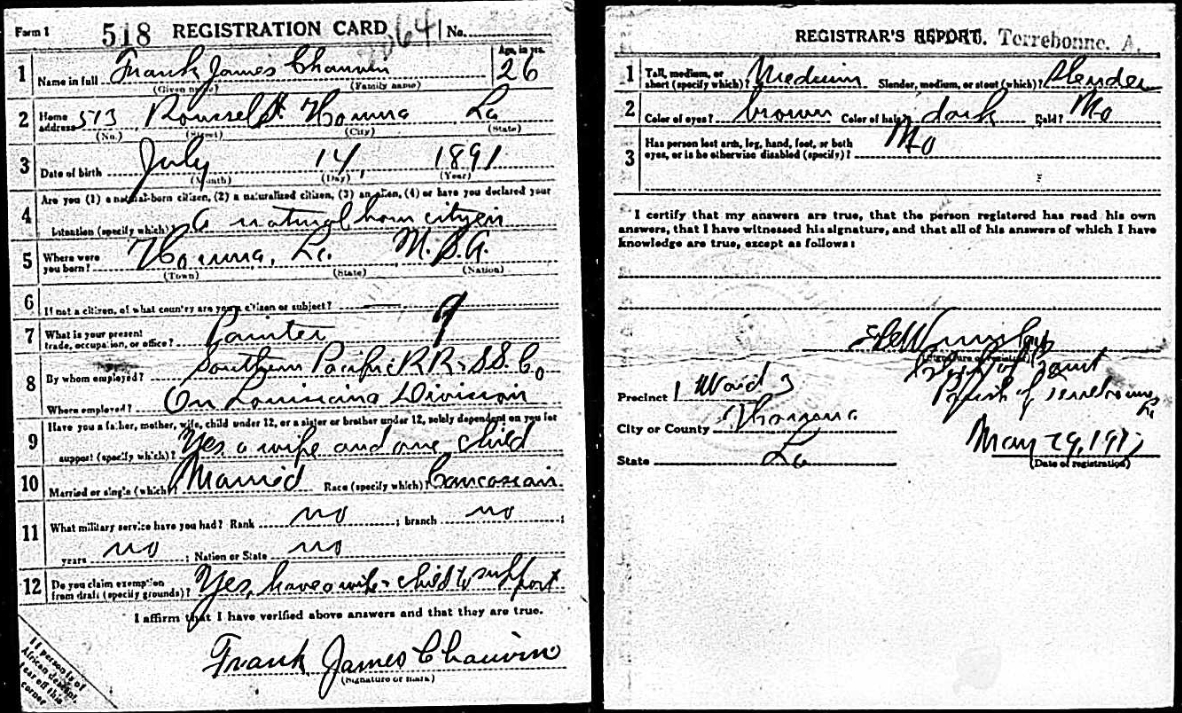 Form 1 518 REGISTRATION CARD 64 No.
Age, in yrs.
1 Name in full Frank James Chauvin 26
(Given name) (Family name)
2 Home address 573 Roussel St Houma La
(No.) (Street) (City) (State)
3 Date of birth July 14 1891
(Month) (Day) (Year)
Are you (1) a natural-born citizen, (2) a naturalized citizen, (3) an alien, (4) or have you declared your
4 intention (specify which)? A natural born cityen
5 Where were you born? Houma, La. U.S.A.
(Town) (State) (Nation)
6 If not a citizen, of what country are you a citizen or subject?
7 What is your present trade, occupation, or office? Painter 9
8 By whom employed? Southern Pacific RR & SS. Co
Where employed? On Louisiana Division
Have you a father, mother, wife, child under 12, or a sister or brother under 12, solely dependent on you for
9 support (specify which)? Yes a wife and one child
10 Married or single (which)? Married Race (specify which)? Caucasian
11 What military service have you had? Rank no ; branch no ;
years no ; Nation or State no
12 Do you claim exemption from draft (specify grounds)? Yes, have a wife & child to support
I affirm that I have verified above answers and that they are true.
Frank James Chauvin
(Signature or mark)
If person is of
African descent,
tear off this
corner
REGISTRAR'S REPORT. Terrebonne. A.
1 Tall, medium, or short (specify which)? Medium Slender, medium, or stout (which)? Slender
2 Color of eyes? brown Color of hair? dark Bald? No
3 Has person lost arm, leg, hand, foot, or both eyes, or is he otherwise disabled (specify)? No
I certify that my answers are true, that the person registered has read his own
answers, that I have witnessed his signature, and that all of his answers of which I have
knowledge are true, except as follows:
(Signature of registrar)
Precinct 1 Ward 3
Parish of Terrebonne
La
City or County Houma
State La
May 29, 1917
(Date of registration)